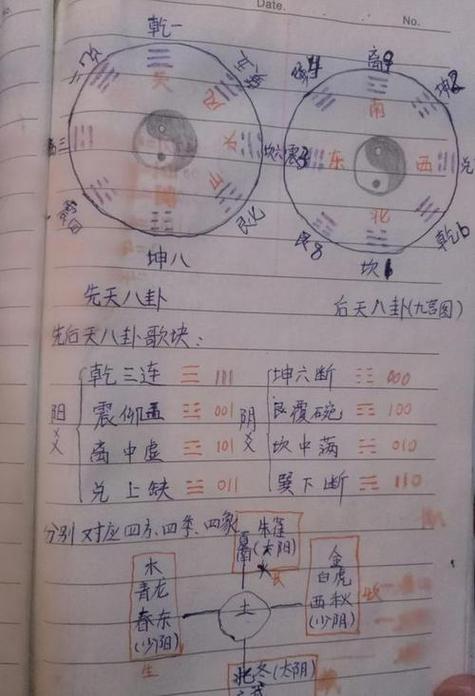 Date.
No.
乾一
兑二
巽五
离三
坎六
震四
艮七
坤八
天
风
水
山
先天八卦
离9
坤2
巽4
震3
兑
艮8
乾6
坎1
南
东
西
北
后天八卦(九宫图)
先后天八卦歌块:
阳爻
乾三连 ☰ 111
震仰盂 ☳ 001
离中虚 ☲ 101
兑上缺 ☱ 011
阴爻
坤六断 ☷ 000
艮覆碗 ☶ 100
坎中满 ☵ 010
巽下断 ☴ 110
分别对应四方、四季、四象
朱雀
夏南(太阳)
火
木
青龙
春东
(少阳)
生
土
金
白虎
西秋
(少阴)
收
北冬(太阴)